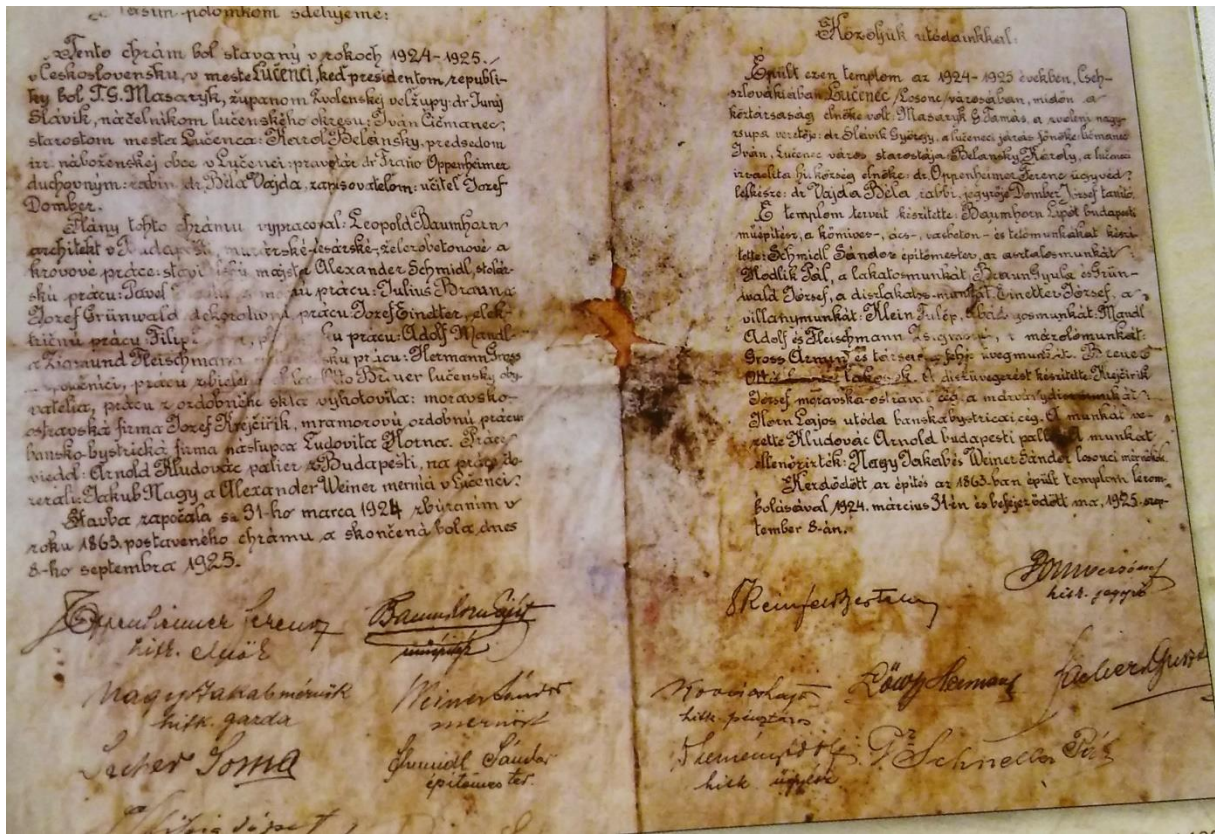 našim potomkom sdelujeme:
Tento chrám bol stavaný v rokoch 1924-1925.
v Československu, v meste Lučenci, keď presidentom republi-
ky bol T.G. Masaryk, županom Zvolenskej veľžupy: dr Juraj
Slávik, náčelníkom lučenského okresu: Iván Čičmanec,
starostom mesta Lučenca: Karol Belánsky, predsedom
izr. náboženskej obce v Lučenci: pravotár dr Fraňo Oppenheimer
duchovným: rabín dr. Béla Vajda, zapisovatelom: učitel Jozef
Domber.
Plány tohto chrámu vypracoval: Leopold Baumhorn
architekt v Budapešti, murárske-tesárske-železobetonové a
krovové práce: staviteľský majster Alexander Schmidl, stolár-
skú prácu: Pavel prácu: Julius Braun a
Jozef Grünwald dekoratívnu prácu: Jozef Eindtter, elek-
tričnú prácu Filip prácu: Adolf Mandl
a Zigmund Fleischmann prácu: Hermann Gross
prácu Brauer lučenský oby-
vatelia, prácu z ozdobného skla vyhotovila: moravsko-
ostravská firma Jozef Krejčiřik, mramorovú ozdobnú prácu
bansko-bystrická firma nástupca Ludovita Horna. Práce
viedol: Arnold Kludovác palier z Budapešti, na práce do-
zerali: Jakub Nagy a Alexander Weiner merníci v Lučenci.
Stavba započala sa 31-ho marca 1924 zbúraním v
roku 1863. postaveného chrámu a skončená bola dnes
8-ho septembra 1925.
Oppenheimer Ferenc
hitk. elnök
Baumhorn Lipót
műépítész
Nagy Jakab mérnök
hitk. gazda
Weiner Sándor
mérnök
Soma
Schmidl Sándor
építőmester.
József
Közöljük utódainkkal:
Épült ezen templom az 1924-1925 években, Cseh-
szlovákiában Lučenec /Losonc/ városában, midőn a
köztársaság elnöke volt: Masaryk G. Tamás, a zvoleni nagy-
zsupa vezetője: dr. Slávik György, a lučeneci járás főnöke: Čičmanec
Iván, Lučenec város starostája: Belánsky Károly, a lučeneci
izraelita hitközség elnöke: dr. Oppenheimer Ferenc ügyvéd,
lelkésze: dr Vajda Béla rabbi, jegyzője Domber József tanító.
E templom terveit készítette: Baumhorn Lipót budapesti
műépítész, a kőmives-, ács-, vasbeton- és tetőmunkákat készí-
tette: Schmidl Sándor építőmester, az asztalosmunkát:
Modlik Pál, a lakatosmunkát, Braun Gyula és Grün-
wald József, a díszlakatos-munkát Eindtter József, a
villanymunkát: Klein Fülöp, a bádogosmunkát: Mandl
Adolf és Fleischmann Zsigmond, a mázolómunkát:
Gross Ármin és társai, üvegmunkát: Breuer
lakosok. A díszüvegezést készítette: Krejčiřik
József moravska-ostravai cég, a márványdíszmunkát:
Horn Lajos utóda banskabystricai cég. A munkát ve-
zette Kludovác Arnold budapesti pallér. A munkát
ellenőrizték: Nagy Jakab és Weiner Sándor losonci mérnökök.
Kezdődött az építés az 1863-ban épült templom lerom-
bolásával 1924. március 31-én és befejeződött ma, 1925. szep-
tember 8-án.
hitk. jegyző
hitk. pénztáros
Löwy Hermann
hitk. ügyész